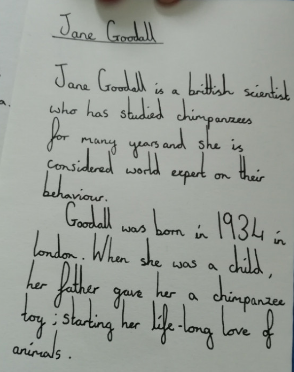 Jane Goodall
Jane Goodall is a brittish scientist
who has studied chimpanzees
for many years and she is
considered world expert on their
behaviour.
Goodall was born in 1934 in
london. When she was a child,
her father gave her a chimpanzee
toy; starting her life-long love of
animals.